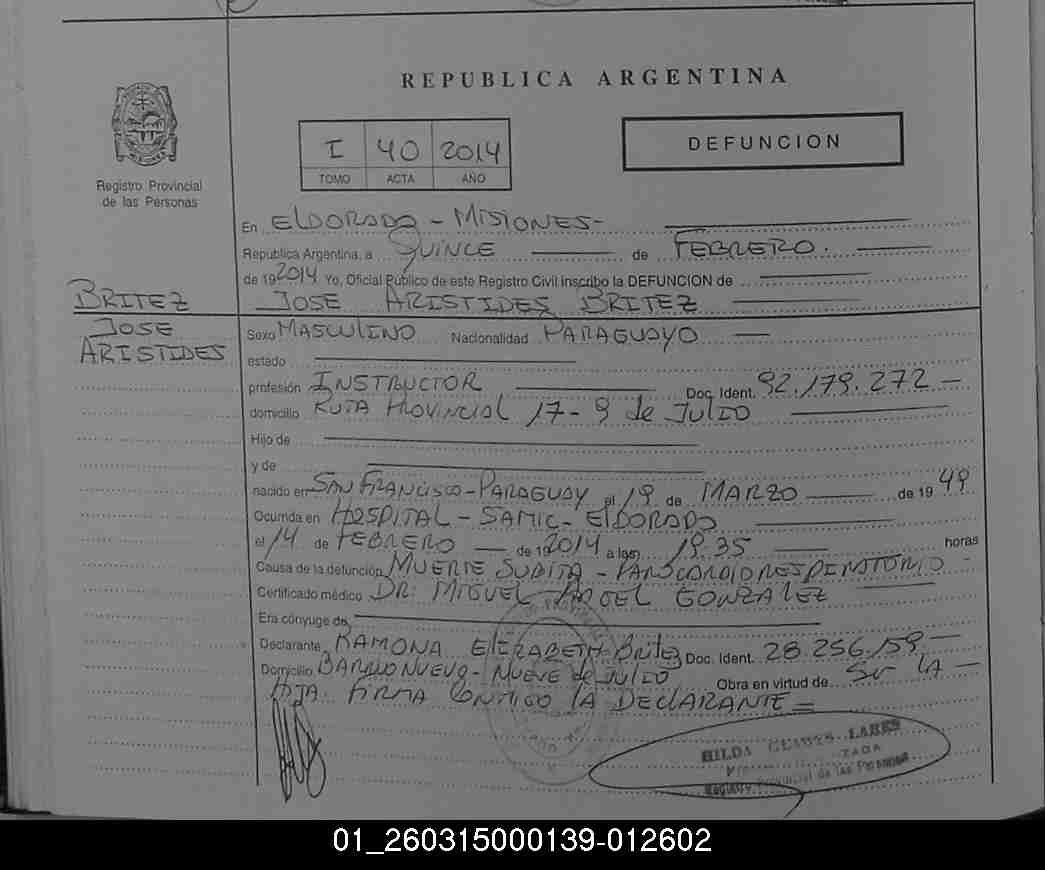 REPUBLICA ARGENTINA
I 40 2014
TOMO ACTA AÑO
DEFUNCION
Registro Provincial
de las Personas
En ELDORADO - MISIONES -
Republica Argentina, a QUINCE de FEBRERO.
de 19 2014 Yo, Oficial Público de este Registro Civil inscribo la DEFUNCION de
BRITEZ JOSE ARISTIDES BRITEZ
JOSE
ARISTIDES
Sexo MASCULINO Nacionalidad PARAGUAYO
estado
profesión INSTRUCTOR Doc. Ident. 92.179.272 -
domicilio RUTA PROVINCIAL 17 - 9 de JULIO
Hijo de
y de
nacido en SAN FRANCISCO - PARAGUAY el 19 de MARZO de 19 49
Ocurrida en HOSPITAL - SAMIC - ELDORADO
el 14 de FEBRERO de 19 2014 a las 19.35 horas
Causa de la defunción MUERTE SUBITA -
Certificado médico DR. MIGUEL ANGEL GONZALEZ
Era cónyuge de
Declarante RAMONA ELIZABETH Britez Doc. Ident. 28.256.159.
Domicilio BARRIO NUEVO - NUEVE de JULIO Obra en virtud de Ser LA -
HIJA. FIRMA CONMIGO LA DECLARANTE =
HILDA GLADYS LARES
Registro Provincial de las Personas
01_260315000139-012602